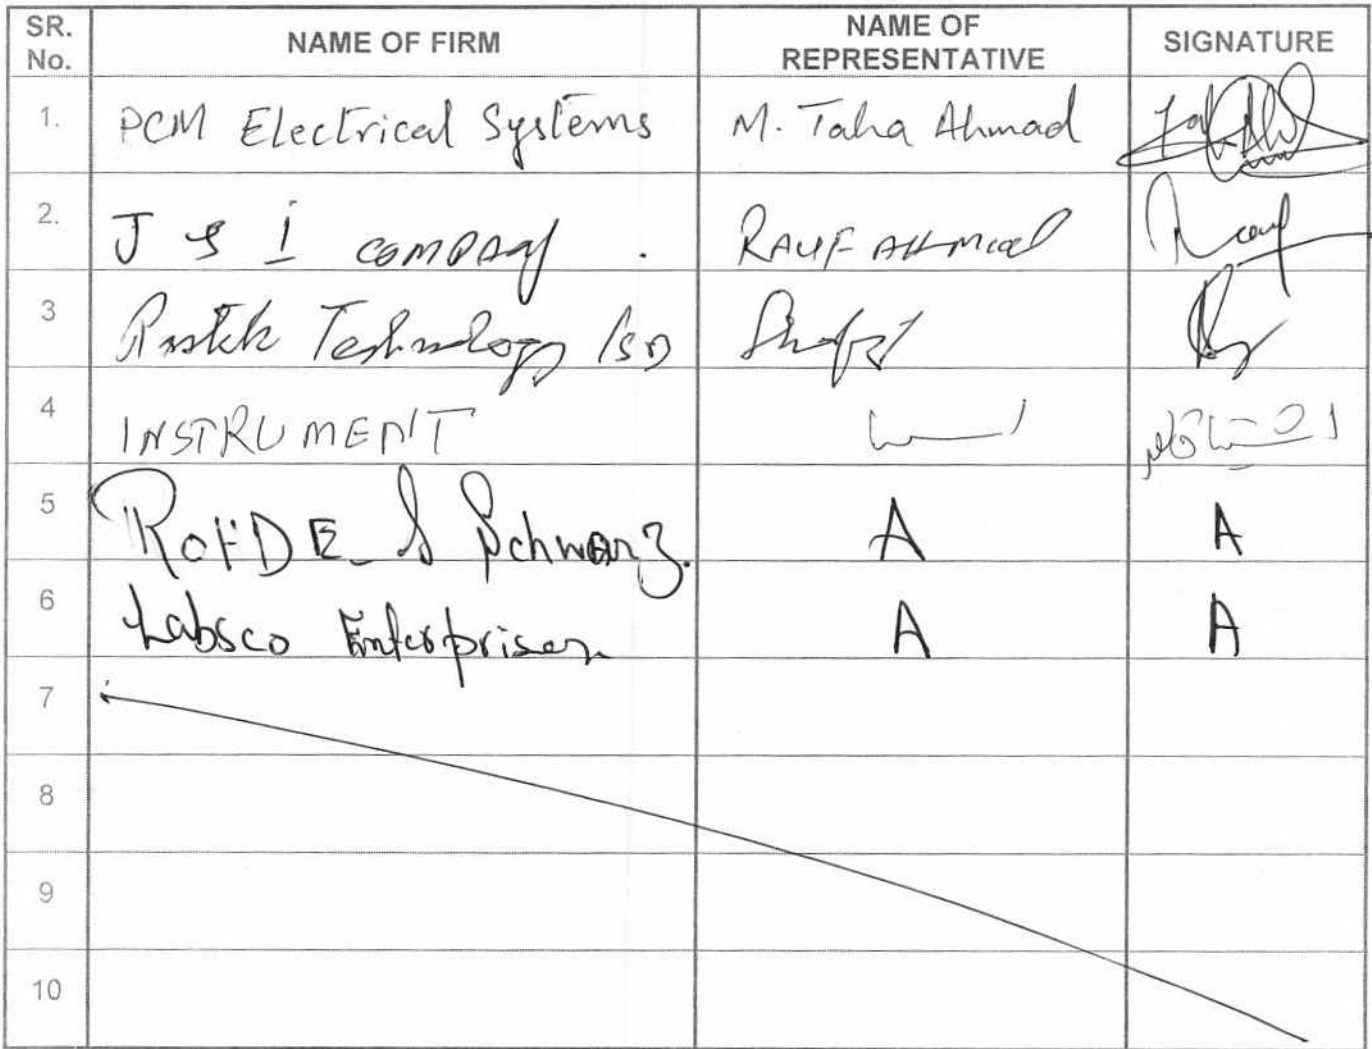 SR. No. NAME OF FIRM NAME OF REPRESENTATIVE SIGNATURE
1. PCM Electrical Systems M. Taha Ahmad
2. J & I company . RAUF AHMAD Rauf
3 Technology
4 INSTRUMENT
5 ROHDE & Schwarz. A A
6 Labsco Enterprises A A
7
8
9
10